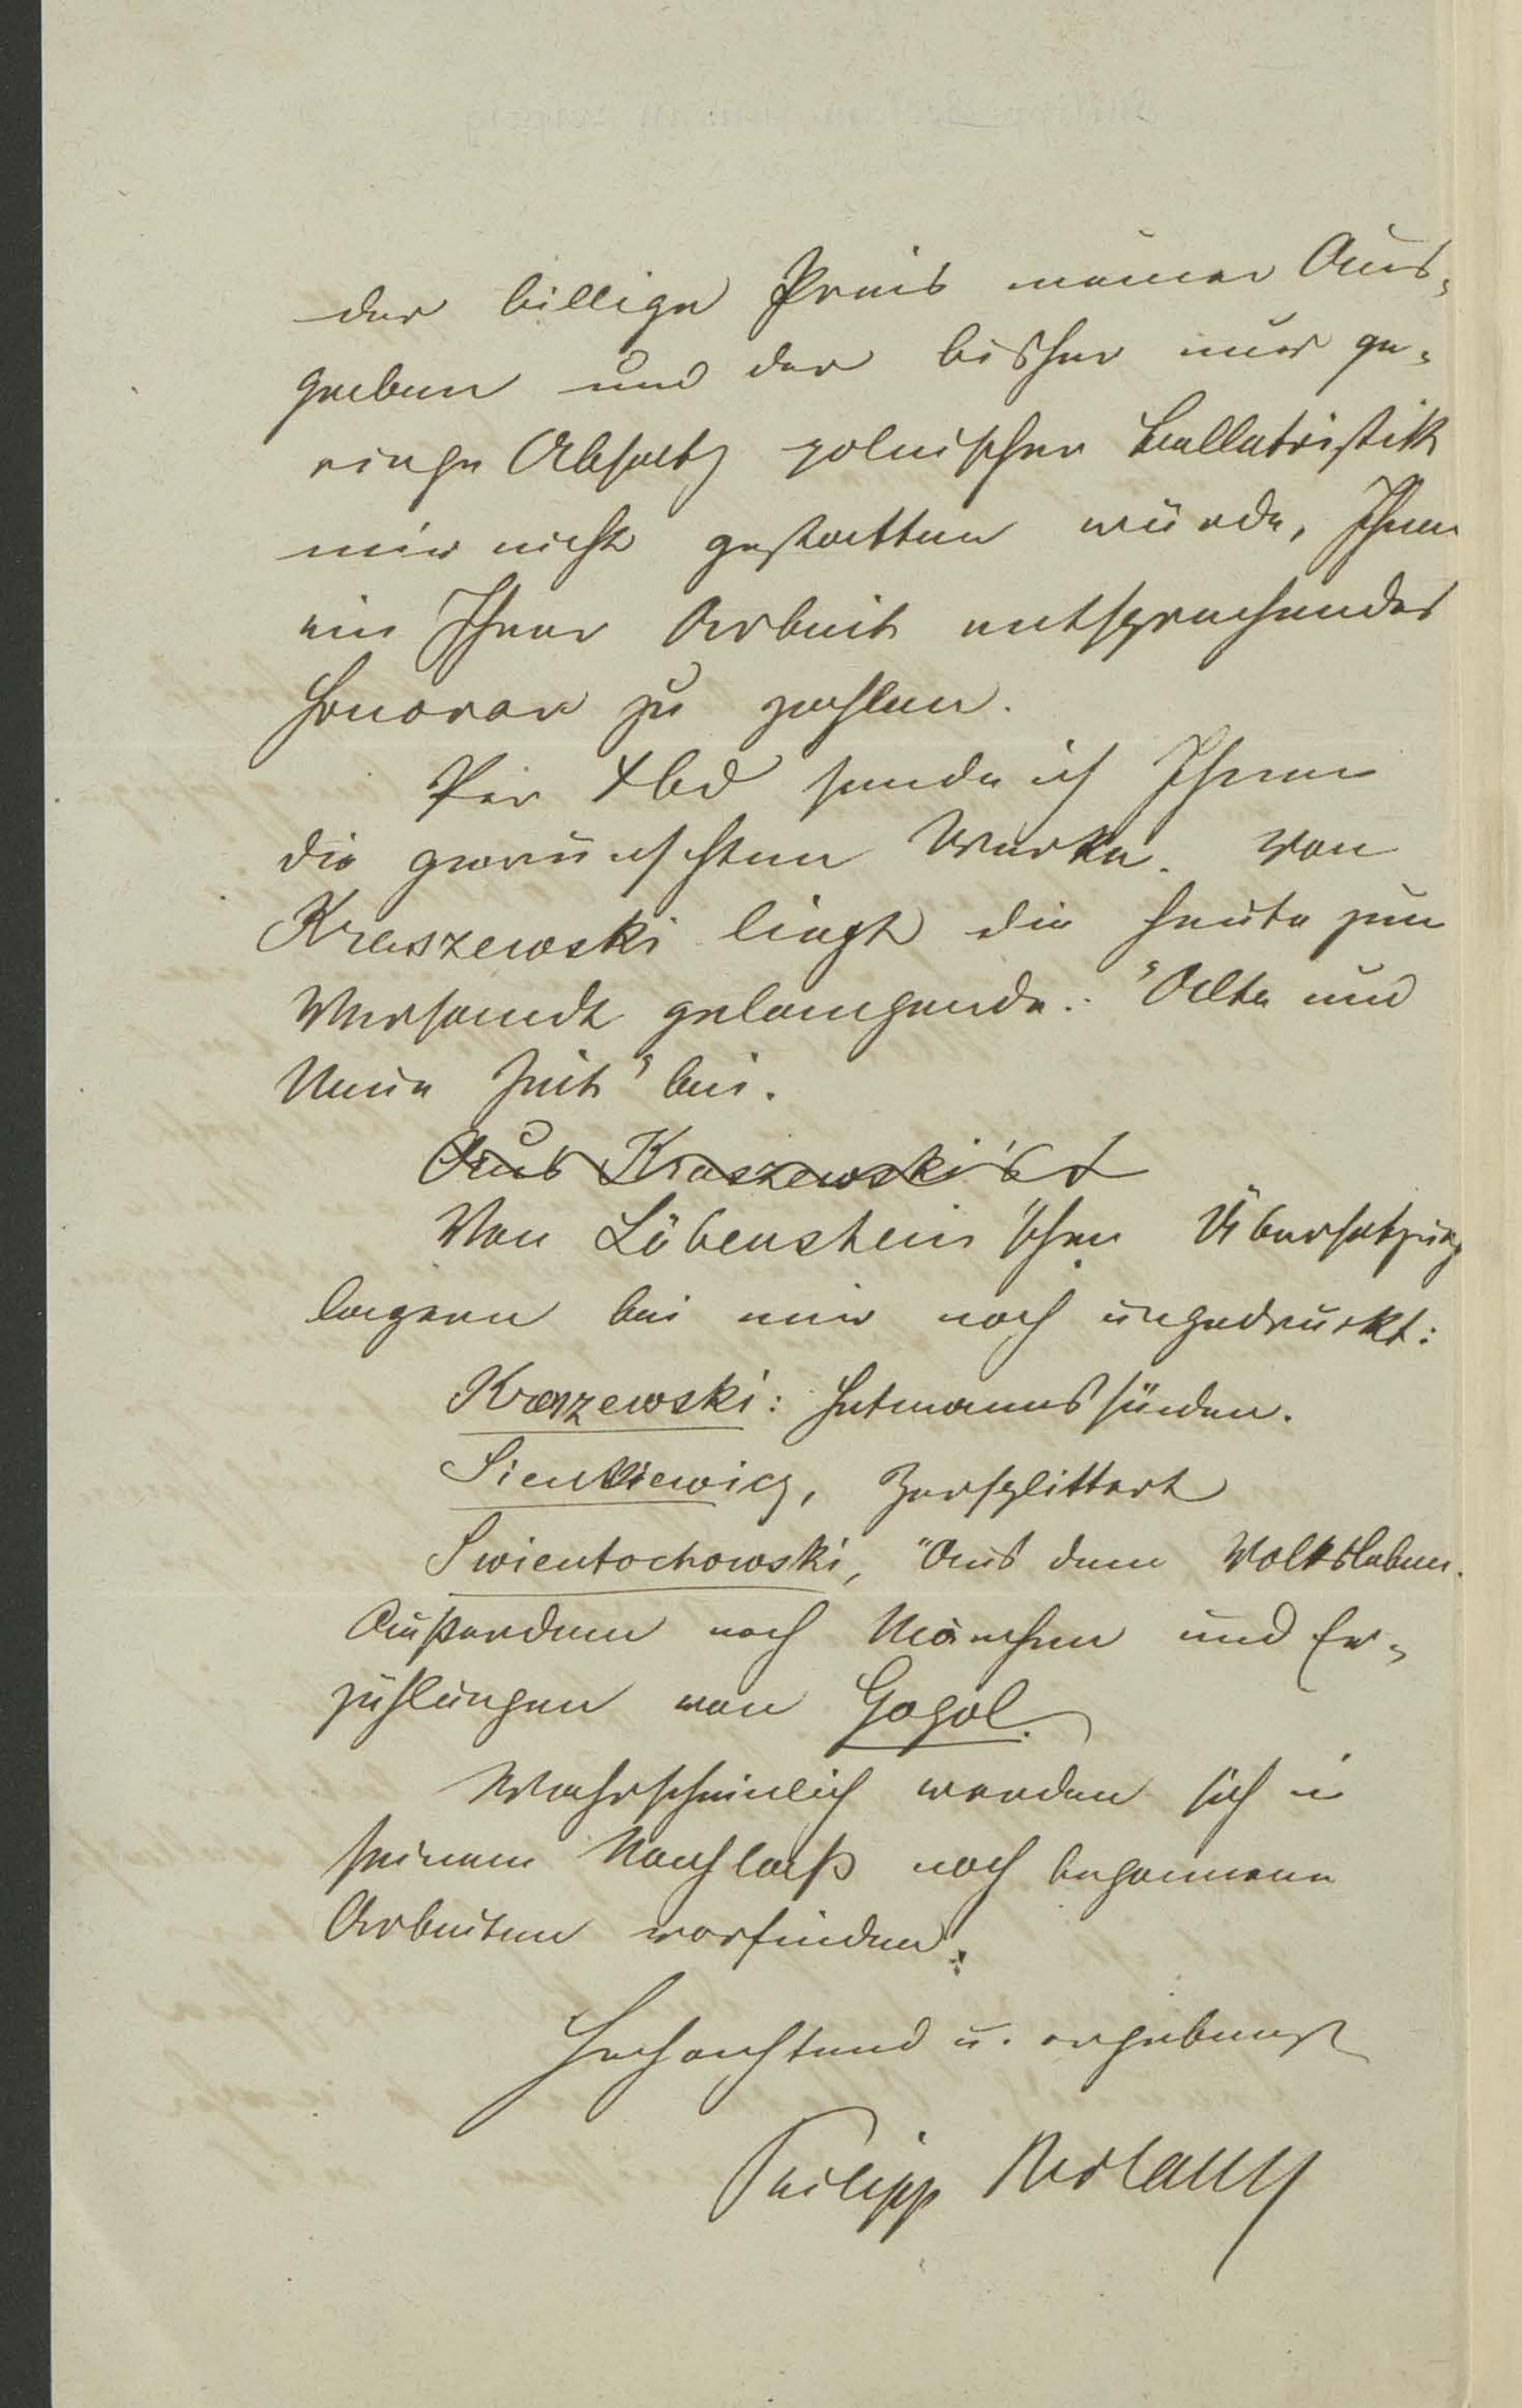 der billige Preis meiner Aus-
gaben und der bisher nur ge-
ringe Absatz polnischer Belletristik
mir nicht gestatten würde, Ihnen
ein Ihrer Arbeit entsprechendes
Honorar zu zahlen.
Per Xbd sende ich Ihnen
die gewünschten Werke. Von
Kraszewski liegt die heute zum
Versandt gelangende: "Alte und
Neue Zeit" bei.
Aus Kraszewski's
Von Löbenstein'schen Übersetzung
lagern bei mir noch ungedruckt:
Kraszewski: Hetmannssünden.
Sienkiewicz, Zersplittert
Swientochowski, "Aus dem Volksleben.
Außerdem noch Märchen und Er-
zählungen von Gogol.
Wahrscheinlich werden sich in
seinem Nachlaß noch begonnene
Arbeiten vorfinden.
Hochachtend u. ergebenst
Philipp Reclam